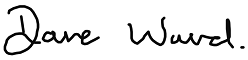 Dave Ward.